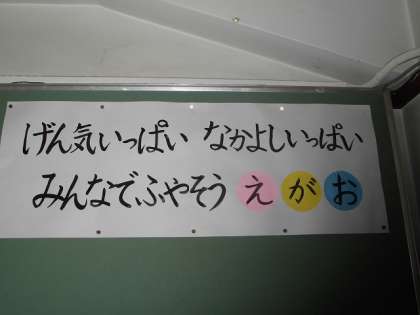 げん気いっぱい なかよしいっぱい
みんなでふやそう えがお